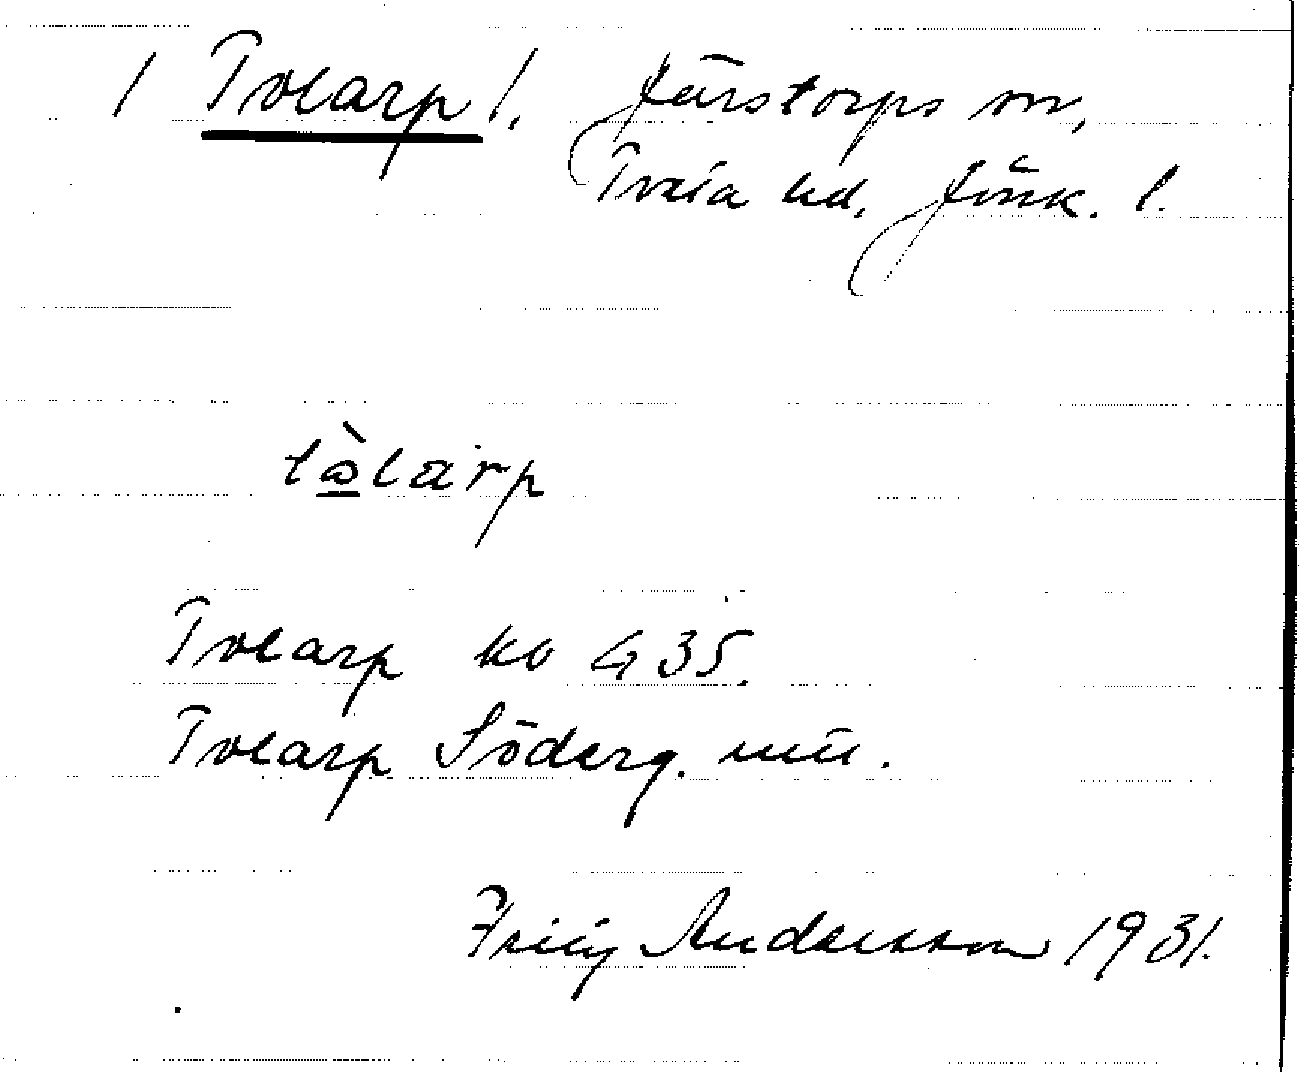 / Tolarp /. Järstorps sn,
Tveta hd, Jönk. l.
tòlarp
Tolarp kv 435.
Tolarp Söderg. utt.
Andersson 1931.